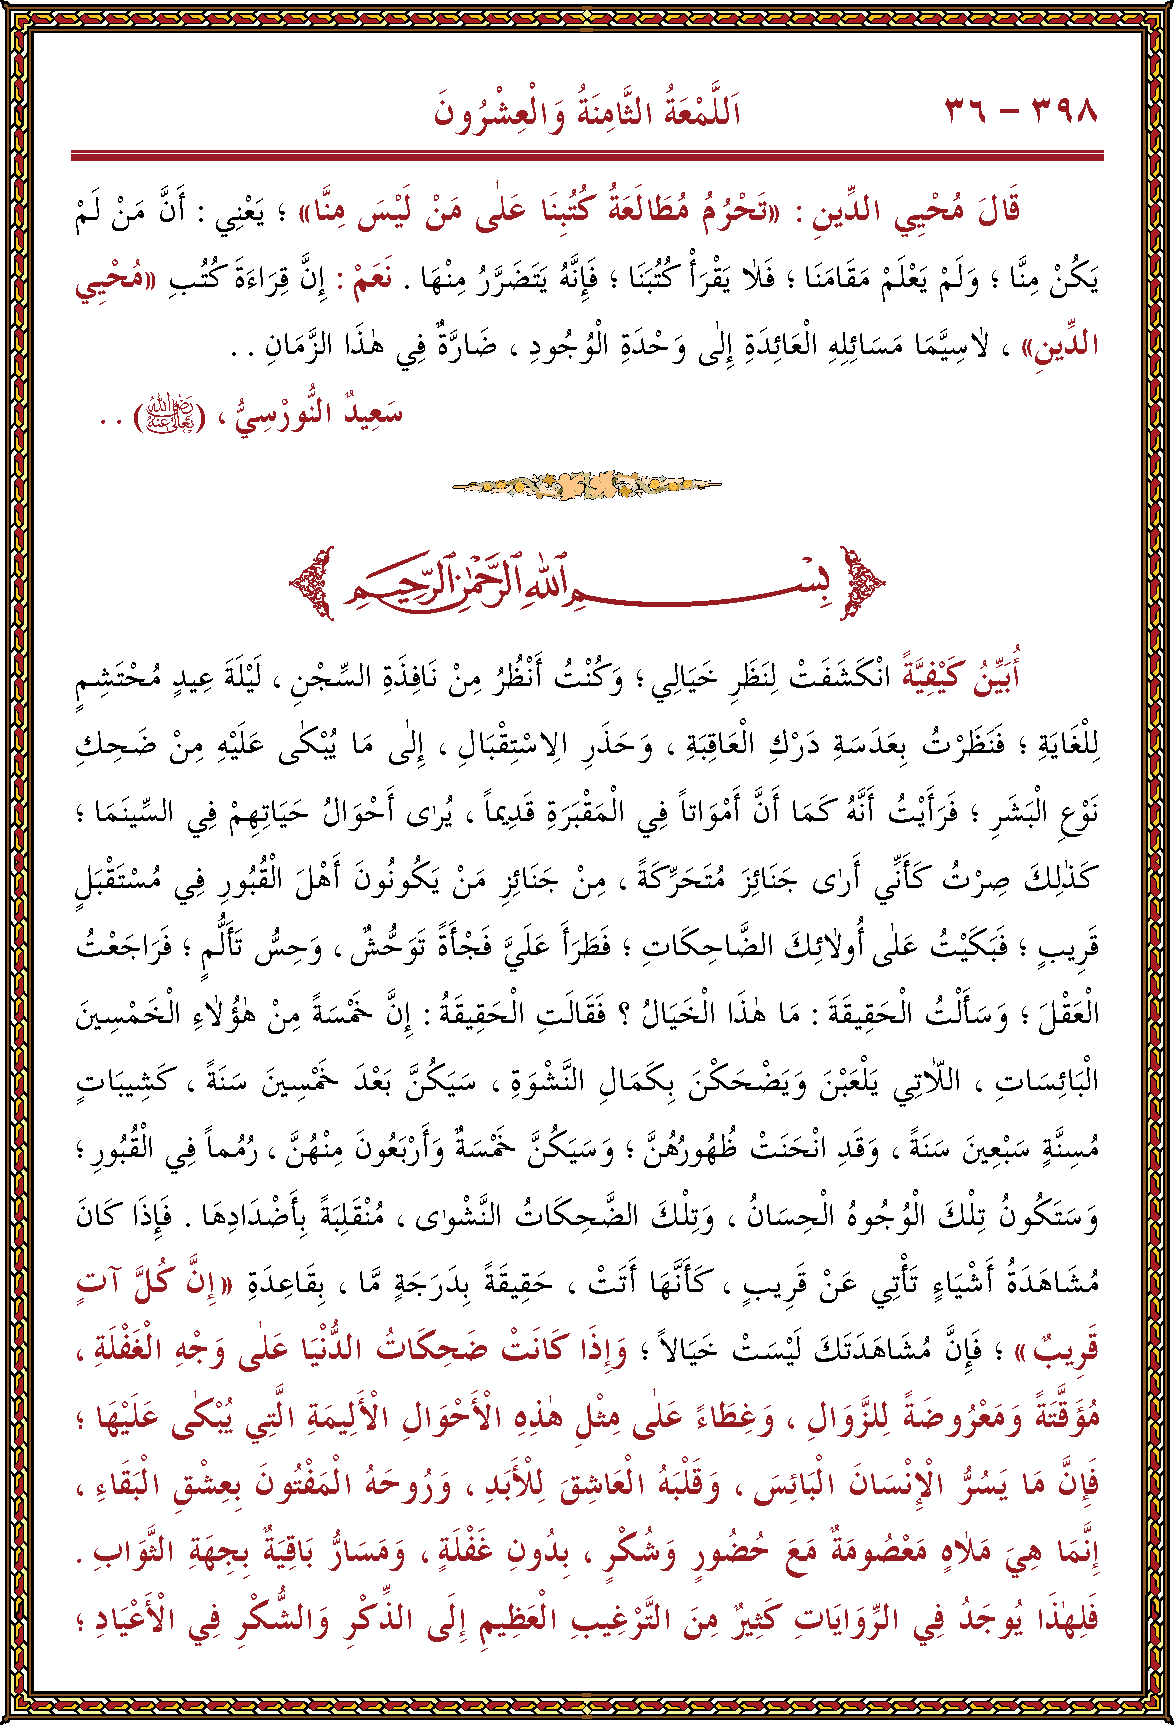 ٣٩٨ – ٣٦ اَللَّمْعَةُ الثَّامِنَةُ وَالْعِشْرُونَ
قَالَ مُحْيِي الدِّينِ : «تَحْرُمُ مُطَالَعَةُ كُتُبِنَا عَلٰى مَنْ لَيْسَ مِنَّا» ؛ يَعْنِي : أَنَّ مَنْ لَمْ
يَكُنْ مِنَّا ؛ وَلَمْ يَعْلَمْ مَقَامَنَا ؛ فَلاٰ يَقْرَأْ كُتُبَنَا ؛ فَإِنَّهُ يَتَضَرَّرُ مِنْهَا . نَعَمْ : إِنَّ قِرَاءَةَ كُتُبِ «مُحْيِي
الدِّينِ» ، لاٰسِيَّمَا مَسَائِلِهِ الْعَائِدَةِ إِلٰى وَحْدَةِ الْوُجُودِ ، ضَارَّةٌ فِي هٰذَا الزَّمَانِ . .
سَعِيدٌ النُّورْسِيُّ ، (رَضِيَ اللهُ تَعَالَى عَنْهُ) . .
بِسْمِ ٱللهِ ٱلرَّحْمٰنِ ٱلرَّحِيمِ
أُبَيِّنُ كَيْفِيَّةً انْكَشَفَتْ لِنَظَرِ خَيَالِي ؛ وَكُنْتُ أَنْظُرُ مِنْ نَافِذَةِ السِّجْنِ ، لَيْلَةَ عِيدٍ مُحْتَشِمٍ
لِلْغَايَةِ ؛ فَنَظَرْتُ بِعَدَسَةِ دَرْكِ الْعَاقِبَةِ ، وَحَذَرِ الاِسْتِقْبَالِ ، إِلٰى مَا يُبْكٰى عَلَيْهِ مِنْ ضَحِكِ
نَوْعِ الْبَشَرِ ؛ فَرَأَيْتُ أَنَّهُ كَمَا أَنَّ أَمْوَاتاً فِي الْمَقْبَرَةِ قَدِيماً ، يُرٰى أَحْوَالُ حَيَاتِهِمْ فِي السِّينَمَا ؛
كَذٰلِكَ صِرْتُ كَأَنِّي أَرٰى جَنَائِزَ مُتَحَرِّكَةً ، مِنْ جَنَائِزِ مَنْ يَكُونُونَ أَهْلَ الْقُبُورِ فِي مُسْتَقْبَلٍ
قَرِيبٍ ؛ فَبَكَيْتُ عَلٰى أُولٰئِكَ الضَّاحِكَاتِ ؛ فَطَرَأَ عَلَيَّ فَجْأَةً تَوَحُّشٌ ، وَحِسُّ تَأَلُّمٍ ؛ فَرَاجَعْتُ
الْعَقْلَ ؛ وَسَأَلْتُ الْحَقِيقَةَ : مَا هٰذَا الْخَيَالُ ؟ فَقَالَتِ الْحَقِيقَةُ : إِنَّ خَمْسَةً مِنْ هٰؤُلاٰءِ الْخَمْسِينَ
الْبَائِسَاتِ ، اللاّٰتِي يَلْعَبْنَ وَيَضْحَكْنَ بِكَمَالِ النَّشْوَةِ ، سَيَكُنَّ بَعْدَ خَمْسِينَ سَنَةً ، كَشِيبَاتٍ
مُسِنَّةٍ سَبْعِينَ سَنَةً ، وَقَدِ انْحَنَتْ ظُهُورُهُنَّ ؛ وَسَيَكُنَّ خَمْسَةٌ وَأَرْبَعُونَ مِنْهُنَّ ، رُمُماً فِي الْقُبُورِ ؛
وَسَتَكُونُ تِلْكَ الْوُجُوهُ الْحِسَانُ ، وَتِلْكَ الضَّحِكَاتُ النَّشْوٰى ، مُنْقَلِبَةً بِأَضْدَادِهَا . فَإِذَا كَانَ
مُشَاهَدَةُ أَشْيَاءٍ تَأْتِي عَنْ قَرِيبٍ ، كَأَنَّهَا أَتَتْ ، حَقِيقَةً بِدَرَجَةٍ مَّا ، بِقَاعِدَةِ «إِنَّ كُلَّ آتٍ
قَرِيبٌ» ؛ فَإِنَّ مُشَاهَدَتَكَ لَيْسَتْ خَيَالاً ؛ وَإِذَا كَانَتْ ضَحِكَاتُ الدُّنْيَا عَلٰى وَجْهِ الْغَفْلَةِ ،
مُؤَقَّتَةً وَمَعْرُوضَةً لِلزَّوَالِ ، وَغِطَاءً عَلٰى مِثْلِ هٰذِهِ الْأَحْوَالِ الْأَلِيمَةِ الَّتِي يُبْكٰى عَلَيْهَا ؛
فَإِنَّ مَا يَسُرُّ الْإِنْسَانَ الْبَائِسَ ، وَقَلْبَهُ الْعَاشِقَ لِلْأَبَدِ ، وَرُوحَهُ الْمَفْتُونَ بِعِشْقِ الْبَقَاءِ ،
إِنَّمَا هِيَ مَلاٰهٍ مَعْصُومَةٌ مَعَ حُضُورٍ وَشُكْرٍ ، بِدُونِ غَفْلَةٍ ، وَمَسَارُّ بَاقِيَةٌ بِجِهَةِ الثَّوَابِ .
فَلِهٰذَا يُوجَدُ فِي الرِّوَايَاتِ كَثِيرٌ مِنَ التَّرْغِيبِ الْعَظِيمِ إِلَى الذِّكْرِ وَالشُّكْرِ فِي الْأَعْيَادِ ؛